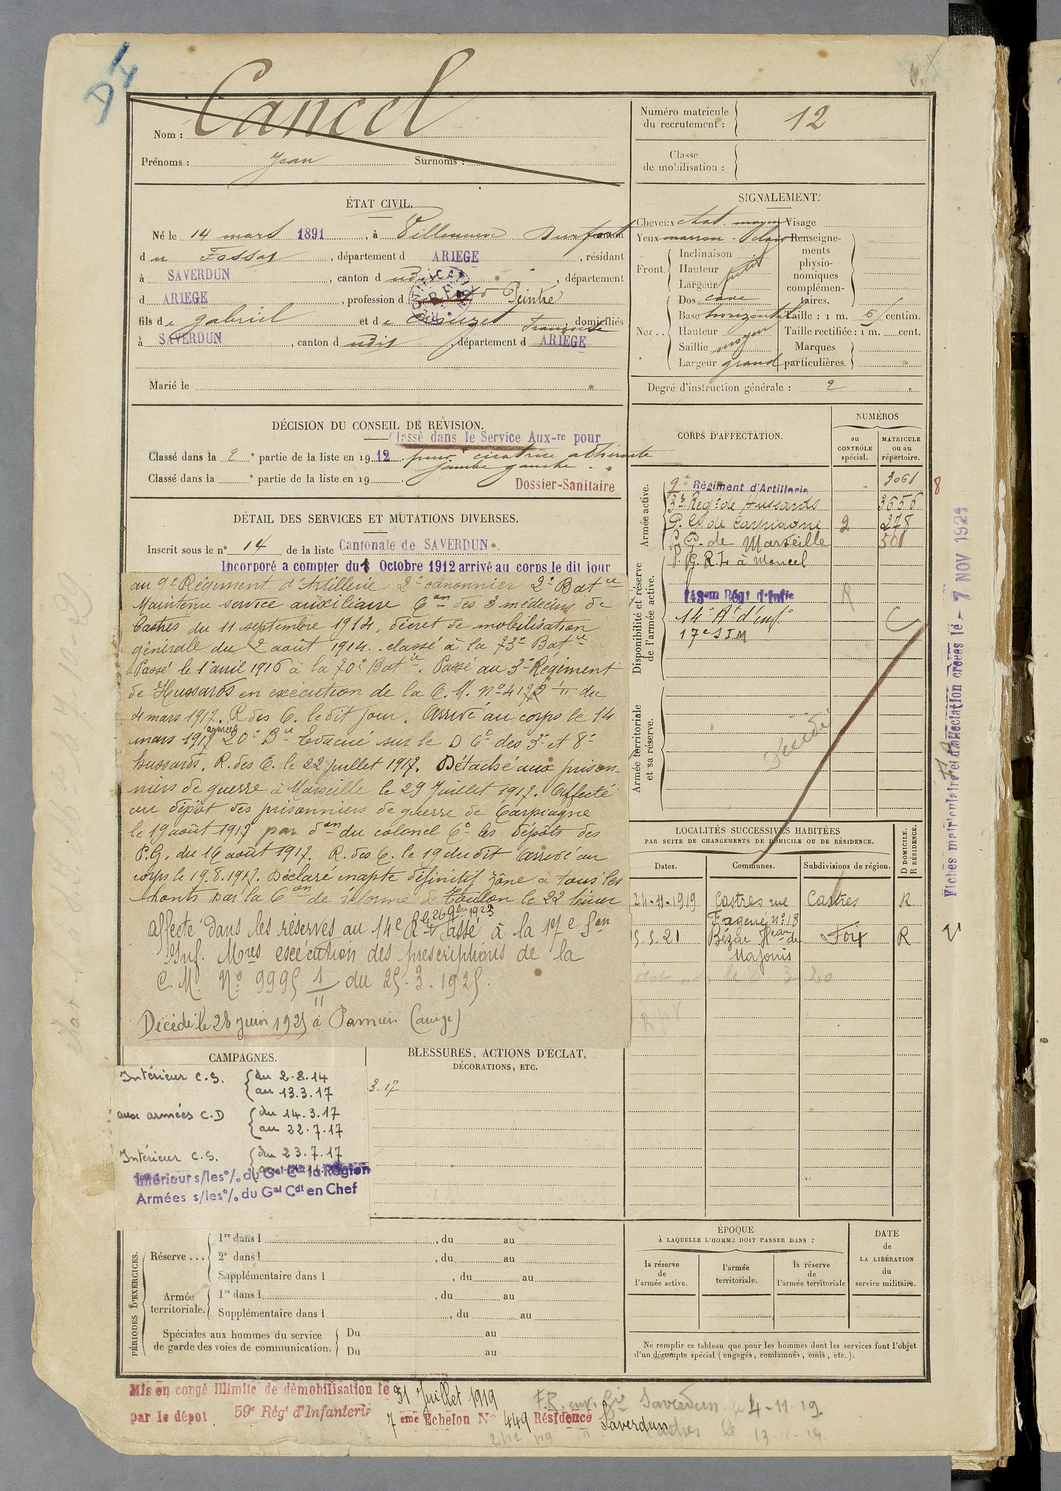 Nom : Cancel
Prénoms : Jean Surnoms :
Numéro matricule du recrutement : 12
Classe de mobilisation :
ÉTAT CIVIL.
Né le 14 mars 1891, à Villeneuve Durfort
du Fossat, département d ARIEGE, résidant
à SAVERDUN, canton d udit, département
d ARIEGE, profession de Peintre
fils de Gabriel et de Françoise domiciliés
à SAVERDUN, canton d udit, département d ARIEGE
Marié le
SIGNALEMENT.
Cheveux chat. moyen Visage
Yeux marron Renseigne-
ments
physio-
nomiques
complémen-
taires.
Front. Inclinaison
Hauteur
Largeur petit
Nez . . Dos cave
Base horizontal Taille : 1 m. centim.
Hauteur moyen Taille rectifiée : 1 m. cent.
Saillie moyen Marques
Largeur grand particulières.
Degré d'instruction générale : 2
DÉCISION DU CONSEIL DE RÉVISION.
Classé dans le Service Aux-re pour
Classé dans la 2e partie de la liste en 1912 pour cicatrice adhérente
jambe gauche
Classé dans la e partie de la liste en 19
Dossier-Sanitaire
DÉTAIL DES SERVICES ET MUTATIONS DIVERSES.
Inscrit sous le n° 14 de la liste Cantonale de SAVERDUN
Incorporé a compter du 8 Octobre 1912 arrivé au corps le dit jour
au 9e Régiment d'Artillerie 2e canonnier 2e Batie
Maintenu service auxiliaire Con des 3 médecins de
Castres du 11 septembre 1914, décret de mobilisation
générale du 2 août 1914. classé à la 73e Batie
Passé le 1 avril 1916 à la 70e Batie. Passé au 3e Régiment
de Hussards en exécution de la C. M. n° 4172 du
4 mars 1917. R. des C. le dit jour. Arrivé au corps le 14
mars 1917 20e Bie Evacué sur le D Ce des 3e et 8e
hussards. R. des C. le 22 juillet 1917. Détaché aux prison-
niers de guerre à Marseille le 29 Juillet 1917. Affecté
au dépôt des prisonniers de guerre de Carpiagne
le 19 août 1917 par don du colonel Ct les dépôts des
P.G. du 16 août 1917. R. des C. le 19 du dit Arrivé au
corps le 19.8.1917. Déclaré inapte définitif zône à tous les
échelons par la Con de réforme de Toulon le 22
affecté dans les réserves au 14e R Passé à la 17e Son
Inf. Mres exécution des prescriptions de la
C. M. N° 9995 1/11 du 25-3-1925.
Décédé le 28 juin 1925 à Pamiers (Ariège)
CORPS D'AFFECTATION.
NUMÉROS
au CONTRÔLE spécial.
MATRICULE ou au répertoire.
Armée active.
9e Régiment d'Artillerie 3061
3e Régt de Hussards 3656
P. G. de Carpiagne 2 278
P. G. de Marseille 501
P. G. R. L. à Moncel
Disponibilité et réserve de l'armée active.
143eme Régt d'Inftie R
14e Rt d'inf. C
17e SIM
Armée territoriale et sa réserve.
Décédé
LOCALITÉS SUCCESSIVES HABITÉES
PAR SUITE DE CHANGEMENTS DE DOMICILE OU DE RÉSIDENCE.
D DOMICILE. R RÉSIDENCE.
Dates. Communes. Subdivisions de région.
24-11-1919 Castres rue Castres R
Fagerie n° 13
5.5.21 Bézac Foix R
Majonis
Fiches matriculaire et d'affectation créées le - 7 NOV 1924
CAMPAGNES.
Intérieur C.S. du 2.8.14
au 13.3.17
aux armées C.D du 14.3.17
au 22.7.17
Intérieur C.S. du 23.7.17
Intérieur s/les °/. du Gal Ct la Région
Armées s/les °/. du Gal Cdt en Chef
BLESSURES, ACTIONS D'ÉCLAT,
DÉCORATIONS, ETC.
3.17
PÉRIODES D'EXERCICES.
Réserve . . . 1re dans l , du au
2e dans l , du au
Supplémentaire dans l , du au
Armée territoriale. 1re dans l , du au
Supplémentaire dans l , du au
Spéciales aux hommes du service
de garde des voies de communication. Du au
Du au
ÉPOQUE
À LAQUELLE L'HOMME DOIT PASSER DANS :
la réserve de l'armée active.
l'armée territoriale.
la réserve de l'armée territoriale
DATE DE LA LIBÉRATION du service militaire.
Ne remplir ce tableau que pour les hommes dont les services font l'objet
d'un décompte spécial (engagés, condamnés, omis, etc.).
Mis en congé illimité de démobilisation le 31 Juillet 1919
par le dépot 59e Régt d'Infanterie 7eme Echelon N° 449 Résidence Saverdun
F.R. Saverdun le 4-11-19
Castres le 13